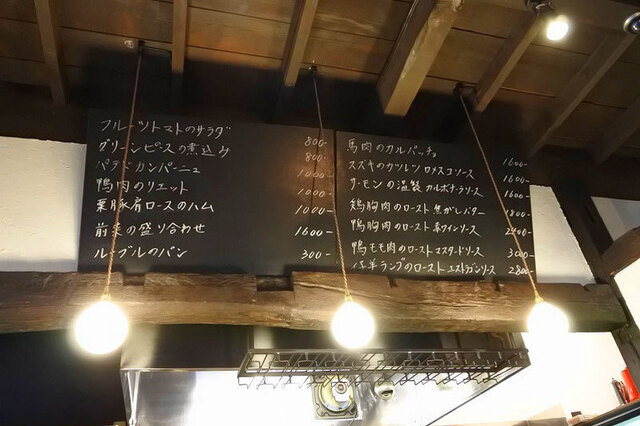 フルーツトマトのサラダ 800-
グリーンピースの煮込み 800-
パテドカンパーニュ 1000-
鴨肉のリエット 1000-
栗豚肩ロースのハム 1000-
前菜の盛り合わせ 1600-
ルーブルのパン 300-
馬肉のカルパッチョ 1600-
スズキのカツレツ ロメスコソース 1600-
サーモンの温製 カルボナラソース 1600-
鶏胸肉のロースト 焦がしバター 1800-
鴨胸肉のロースト 赤ワインソース
鴨モモ肉のロースト マスタードソース
仔羊ランプのロースト エストラゴンソース 2800-